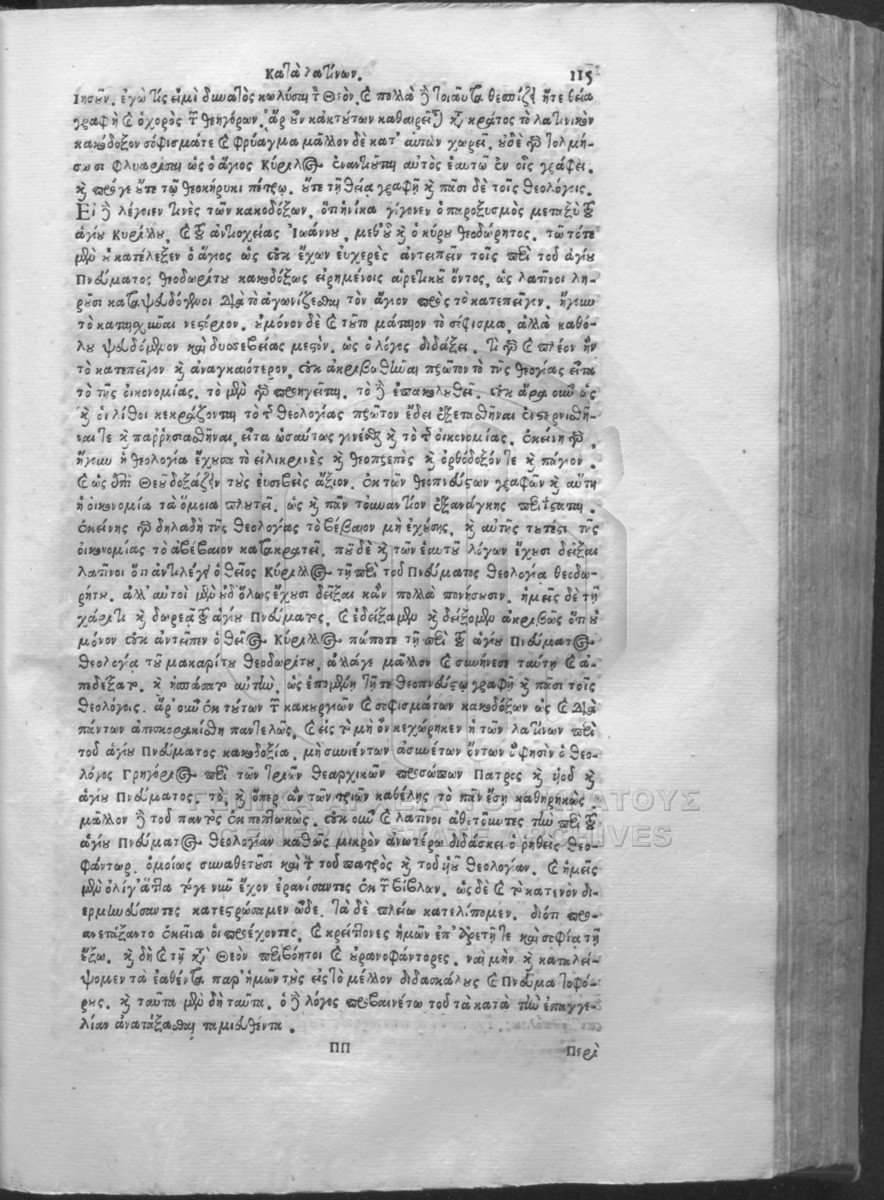 Κατὰ λατίνων. 115
Ιησοῦν. ἐγὼ τίς εἰμὶ δυνατὸς κωλῦσαι τὸν Θεὸν, καὶ πολλὰ δὲ τοιαῦτα θεσπίζει ἥτε θεία
γραφὴ καὶ ὁ χορὸς τῶν θεηγόρων. ἆρ' οὖν κἀκ τούτων καθαιρεῖται κατὰ κράτος τὸ λατινικὸν
κακόδοξον σόφισμάτε καὶ φρύαγμα μᾶλλον δὲ κατ' αὐτῶν χωρεῖ. οὐδὲ γὰρ τολμή-
σωσι φλυαρῆσαι ὡς ὁ ἅγιος Κύριλλος ἐναντιοῦται αὐτὸς ἑαυτῷ ἐν οἷς γράφει.
καὶ πρόγε οὔτε τῷ θεοκήρυκι πέτρῳ. οὔτε τῇ θείᾳ γραφῇ καὶ πᾶσι δὲ τοῖς θεολόγοις.
Εἰ δὲ λέγοιεν τινὲς τῶν κακοδόξων, ὅτι ἡνίκα γέγονεν ὁ παροξυσμὸς μεταξὺ τοῦ
ἁγίου Κυρίλλου, καὶ τοῦ ἀντιοχείας Ἰωάννου, μεθ' οὗ καὶ ὁ κύρου θεοδώρητος. τῷ τότε
μὲν κατέλεξεν ὁ ἅγιος ὡς οὐκ ἔχων εὐχερὲς ἀντειπεῖν τοῖς περὶ τοῦ ἁγίου
Πνεύματος θεοδωρίτου κακοδόξως εἰρημένοις αἱρετικοῦ ὄντος, ὡς λατῖνοι λη-
ροῦσι καταψευδόμενοι διὰ τὸ ἀγωνίζεσθαι τὸν ἅγιον πρὸς τὸ κατεπεῖγον. ἤγουν
τὸ καταισχῦναι νεστόριον. οὐ μόνον δὲ τοῦτο μάταιον τὸ σόφισμα, ἀλλὰ καθό-
λου ψευδόμενον καὶ δυσσεβείας μεστὸν, ὡς ὁ λόγος διδάξει. τί γὰρ καὶ πλέον ἦν
τὸ κατεπεῖγον καὶ ἀναγκαιότερον, οὐκ ἀκριβωθῆναι πρῶτον τὸ τῆς θεολογίας εἶτα
τὸ τῆς οἰκονομίας. τὸ μὲν γὰρ προηγεῖται, τὸ δὲ ἐπακολουθεῖ. οὐκ ἄρα οὖν ὡς
καὶ οἱ λίθοι κεκράζονται τὸ τῆς θεολογίας πρῶτον ἔδει ἐξετασθῆναι ἐνστερνισθῆ-
ναί τε καὶ παῤῥησιασθῆναι, εἶτα ὡσαύτως γινέσθαι καὶ τὸ τῆς οἰκονομίας. ἐκείνη γὰρ,
ἤγουν ἡ θεολογία ἔχουσα τὸ εἰλικρινὲς καὶ θεοπρεπὲς καὶ ὀρθόδοξόν τε καὶ πάγιον.
καὶ ὡς ἐπὶ Θεοῦ δοξάζειν τοὺς εὐσεβεῖς ἄξιον. ἐκ τῶν θεοπνεύστων γραφῶν καὶ αὕτη
ἡ οἰκονομία τὰ ὅμοια πλουτεῖ. ὡς καὶ πᾶν τοὐναντίον ἐξανάγκης περιίσταται.
ἐκείνης γὰρ δηλαδὴ τῆς θεολογίας τὸ βέβαιον μὴ ἐχούσης, καὶ αὐτῆς τουτέστι τῆς
οἰκονομίας τὸ ἀβέβαιον κατακρατεῖ. ποῦ δὲ καὶ τῶν ἑαυτοῦ λόγων ἔχουσι δεῖξαι
λατῖνοι ὅτι ἀντιλέγει ὁ θεῖος Κύριλλος τῇ περὶ τοῦ Πνεύματος θεολογίᾳ θεοδω-
ρήτου. ἀλλ' αὐτοὶ μὲν οὐδ' ὅλως ἔχουσι δεῖξαι κἂν πολλὰ πονήσουσιν. ἡμεῖς δὲ τῇ
χάριτι καὶ δωρεᾷ τοῦ ἁγίου Πνεύματος, καὶ ἐδείξαμεν καὶ δείξομεν ἀκριβῶς ὅτι οὐ
μόνον οὐκ ἀντεῖπεν ὁ θεῖος Κύριλλος πώποτε τῇ περὶ τοῦ ἁγίου Πνεύματος
θεολογίᾳ τοῦ μακαρίτου θεοδωρίτου, ἀλλάγε μᾶλλον καὶ συνῄνεσε ταύτῃ καὶ ἀ-
πεδέξατο. καὶ ἠσπάσατο αὐτὴν, ὡς ἑπομένην τῇ τε θεοπνεύστῳ γραφῇ καὶ πᾶσι τοῖς
θεολόγοις. ἆρ' οὖν ἐκ τούτων τῶν κακουργιῶν καὶ σοφισμάτων κακοδόξων ὡς καὶ διὰ
πάντων ἀπεσκορακίσθη παντελῶς, καὶ εἰς τὸ μὴ ὂν κεχώρηκεν ἡ τῶν λατίνων περὶ
τοῦ ἁγίου Πνεύματος κακοδοξία, μὴ συνιέντων ἀσυνέτων ὄντων ὅ φησὶν ὁ Θεο-
λόγος Γρηγόριος περὶ τῶν τριῶν θεαρχικῶν προσώπων Πατρὸς καὶ υἱοῦ καὶ
ἁγίου Πνεύματος. τὸ, καὶ ὅπερ ἂν τῶν τριῶν καθέλῃς τὸ πᾶν ἔσῃ καθηρηκὼς
μᾶλλον δὲ τοῦ παντὸς ἐκπεπτωκώς. οὐκ οὖν καὶ λατῖνοι ἀθετοῦντες τὴν περὶ τοῦ
ἁγίου Πνεύματος θεολογίαν καθὼς μικρὸν ἀνωτέρω διδάσκει ὁ ῥηθεὶς θεο-
φάντωρ, ὁμοίως συναθετοῦσι καὶ τὴν τοῦ πατρὸς καὶ τοῦ υἱοῦ θεολογίαν. καὶ ἡμεῖς
μὲν ὀλίγ' ἄττα τόγε νῦν ἔχον ἐρανίσαντες ἐκ τῶν βίβλων. ὡς δὲ καὶ τὸ κατενὸν δι-
ερμηνεύσαντες κατεστρώσαμεν ὧδε. τὰ δὲ πλείω κατελίπομεν. διότι προ-
ανετάξαντο ἐκεῖνα οἱ προέχοντες, καὶ κρείττονες ἡμῶν ἐπ' ἀρετῇ τε καὶ σοφίᾳ τῇ
ἔξω. καὶ δὴ καὶ τῇ κατὰ Θεὸν περιβόητοι καὶ οὐρανοφάντορες. ναὶ μὴν καὶ καταλεί-
ψομεν τὰ ἐαθέντα παρ' ἡμῶν τοὺς εἰς τὸ μέλλον διδασκάλους καὶ Πνευματοφό-
ρους. καὶ ταῦτα μὲν δὴ ταῦτα. ὁ δὲ λόγος προβαινέτω τοῦ τὰ κατὰ τὴν ἐπαγγε-
λίαν ἀνατάξασθαι ταμιευθέντα.
ΠΠ Περὶ
ΓΕΝΙΚΑ ΑΡΧΕΙΑ ΤΟΥ ΚΡΑΤΟΥΣ
GENERAL STATE ARCHIVES